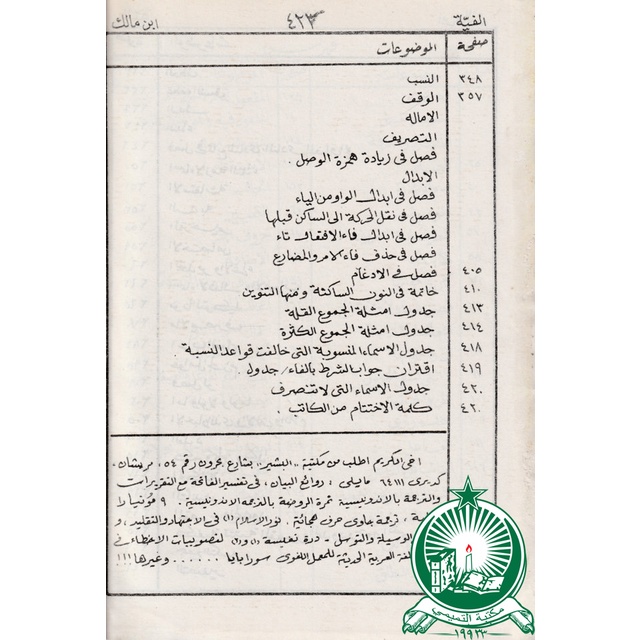 الفية ٤٢٣ ابن مالك
صفحة الموضوعات
٣٤٨ النسب
٣٥٧ الوقف
الاماله
التصريف
فصل فى زيادة همزة الوصل .
الابدال
فصل فى ابدال الواو من الياء
فصل فى نقل الحركة الى الساكن قبلها
فصل فى ابدال فاء الافتعال تاء
فصل فى حذف فاء الامر والمضارع
٤٠٥ فصل فى الادغام
٤١٠ خاتمة فى النون الساكنة ومنها التنوين
٤١٣ جدول امثلة الجموع القلة
٤١٤ جدول امثلة الجموع الكثرة
٤١٨ جدول الاسماء المنسوبة التى خالفت قواعد النسبة .
٤١٩ اقتران جواب الشرط بالفاء / جدول .
٤٢٠ جدول الاسماء التى لا تنصرف
٤٢٠ كلمة الاختتام من الكاتب .
اخى الكريم اطلب من مكتبة ,, البشير ,, بشارع بحرون رقم ٥٤ ، مريشان ،
كديرى ٦٤١١١ مايلى ، روائع البيان ، فى تفسير الفاتحة مع التقريرات
والترجمة بالاندونيسية ثمرة الروضة بالترجمه الاندونيسية . ٩
ترجمة جاوى حرف هجائية . نور الاسلام (١) فى الاجتهاد والتقليد ، و
الوسيلة والتوسل - درة نفيسة (١) و (٢) لتصويبات الاخطاء فى
لغة العربية الحديثة للمحمل اللغوى سورابايا ...... وغيرها !!!
مكتبة التميمي
١٩٩٣